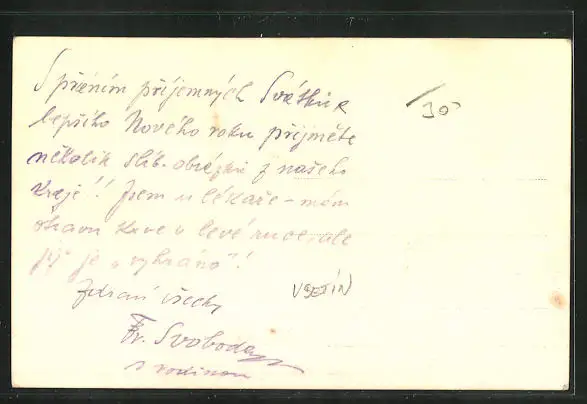 S přáním příjemných Svátků a
lepšího Nového roku přijměte
několik slíb. obrázků z našeho
kraje! Jsem u lékaře – mám
otravu krve v levé ruce, ale
již je "vyhráno"!
Zdraví všecky
Fr. Svoboda
s rodinou
VSETÍN
30